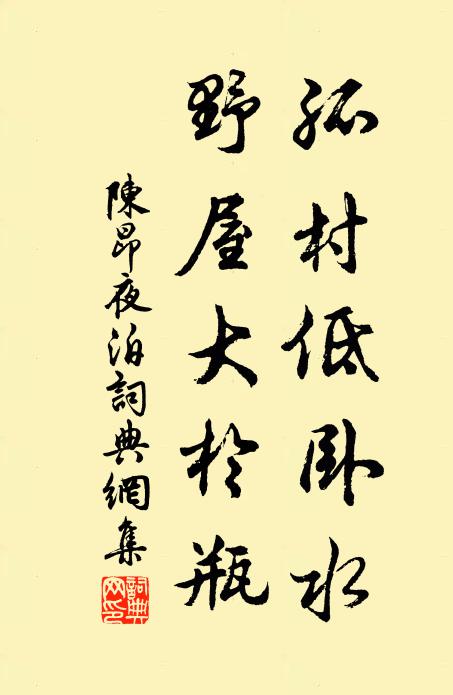 孤村低臥水
野屋大於瓶
陳昂夜泊詞典網集
詞典網印